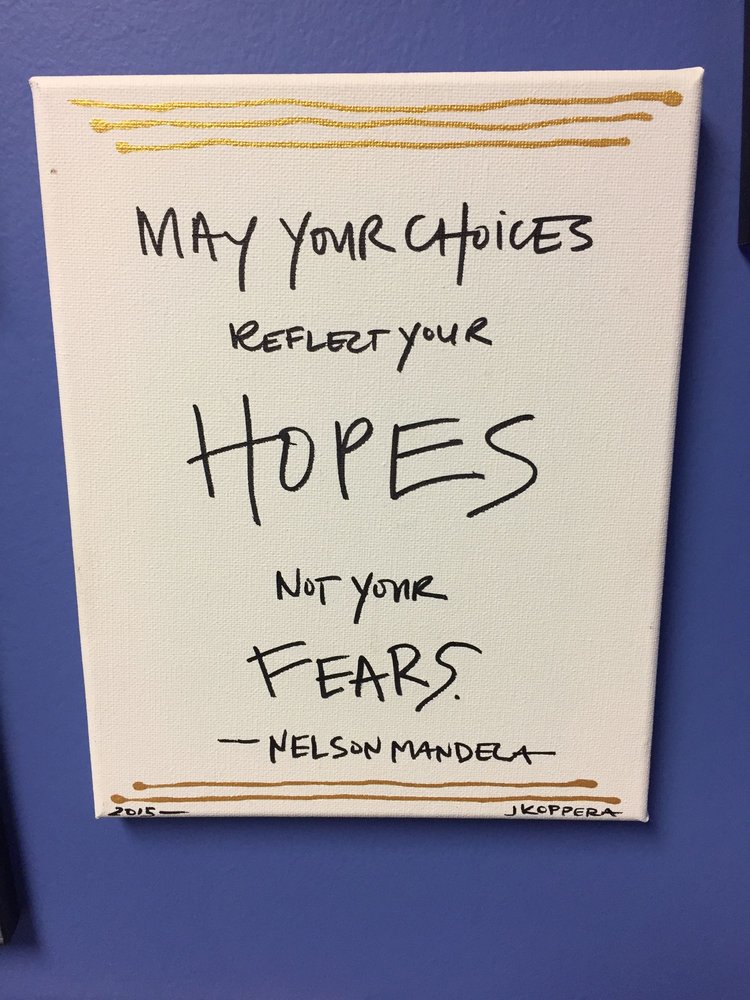 MAY YOUR CHOICES
REFLECT YOUR
HOPES
NOT YOUR
FEARS.
— NELSON MANDELA
2015— JKOPPERA